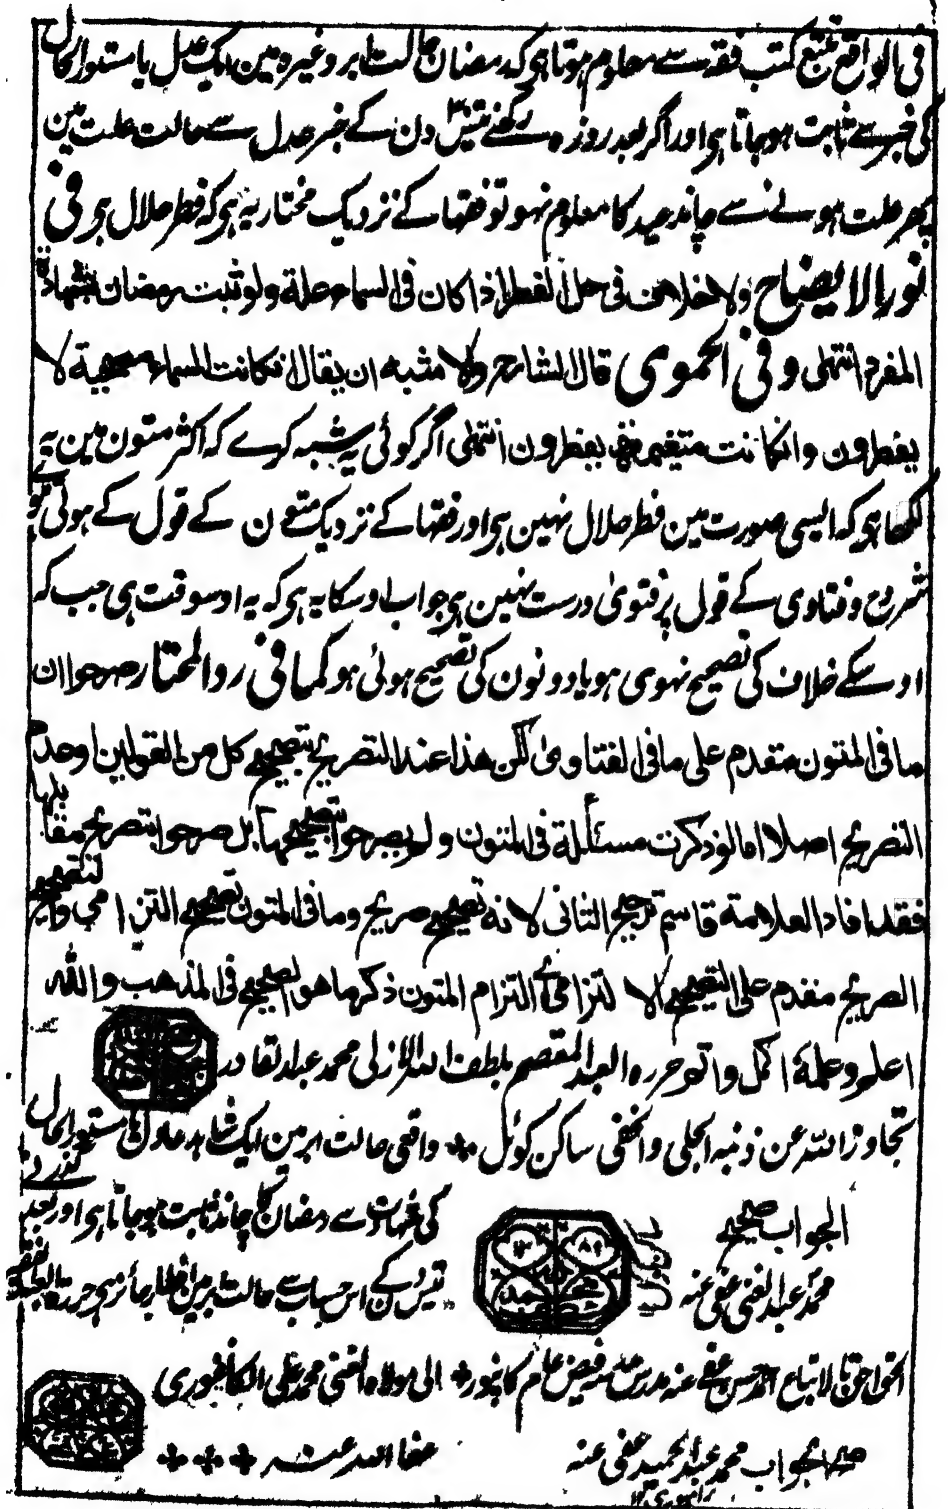 فی الواقع تتبع کتب فقہ سے معلوم ہوتا ہی کہ رمضان حالت ابر وغیرہ مین ایک عدل یا مستور الحال
کی خبر سے ثابت ہوجاتا ہی اور اگر بعد روزہ رکھنے تیس ۳۰ دن کے خبر عدل سے حالت علت مین
پھر علت ہونے سے چاند عید کا معلوم نہو تو فقہا کے نزدیک مختار یہ ہی کہ فطر حلال ہی فی
نور الایضاح ولا خلاف فی حل الفطر اذا کان فی السماء علة ولو ثبت رمضان بشهادة
المفرد انتہی وفی الحموی قال الشارح والاشبه ان یقال ان کانت السماء مصحیة لا
یفطرون وان کانت متغیمة یفطرون انتہی اگر کوئی یہ شبہ کرے کہ اکثر متون مین یہ
لکھا ہی کہ ایسی صورت مین فطر حلال نہین ہی اور فقہا کے نزدیک متون کے قول کے ہوتے ہوئے
شروح وفتاوی کے قول پر فتوی درست نہین ہی جواب اوسکا یہ ہی کہ یہ اوسوقت ہی جب کہ
اوسکے خلاف کی تصحیح نہوی ہو یا دونون کی تصحیح ہوئی ہو کما فی رد المحتار صرحوا ان
ما فی المتون متقدم علی ما فی الفتاوی لکن هذا عند التصریح بتصحیح کل من القولین او عدم
التصریح اصلا اما لو ذکرت مسئلة فی المتون ولم یصرحوا بتصحیحها بل صرحوا بتصریح مقابلها
فقد افاد العلامة قاسم ترجیح الثانی لانه تصحیح صریح وما فی المتون تصحیح التزامی والتصحیح
الصریح مقدم علی التصحیح الالتزامی ای التزام المتون ذکر ما هو الصحیح فی المذهب والله
اعلم وعلمه اکمل واتم حررہ العبد المعتصم بلطف الله الازلی محمد عبد القادر
تجاوز الله عن ذنبه الجلی والخفی ساکن کوئل واقعی حالت ابر مین ایک شاہد عادل یا مستور الحال
کی شہادت سے رمضان کا چاند ثابت ہوجاتا ہی اور بعد گذرنے
الجواب صحیح
محمد عبد الغنی عفی عنه
تیس دن کے اس حساب سے حالت ابر مین افطار جائز ہی حررہ العبد
احمد حسن عفی عنه مدرس مدرسہ فیض عام کانپور الی مولاہ الغنی محمد علی الکانفوری
عفا الله عنه
صح الجواب محمد عبد الحمید عفی عنه